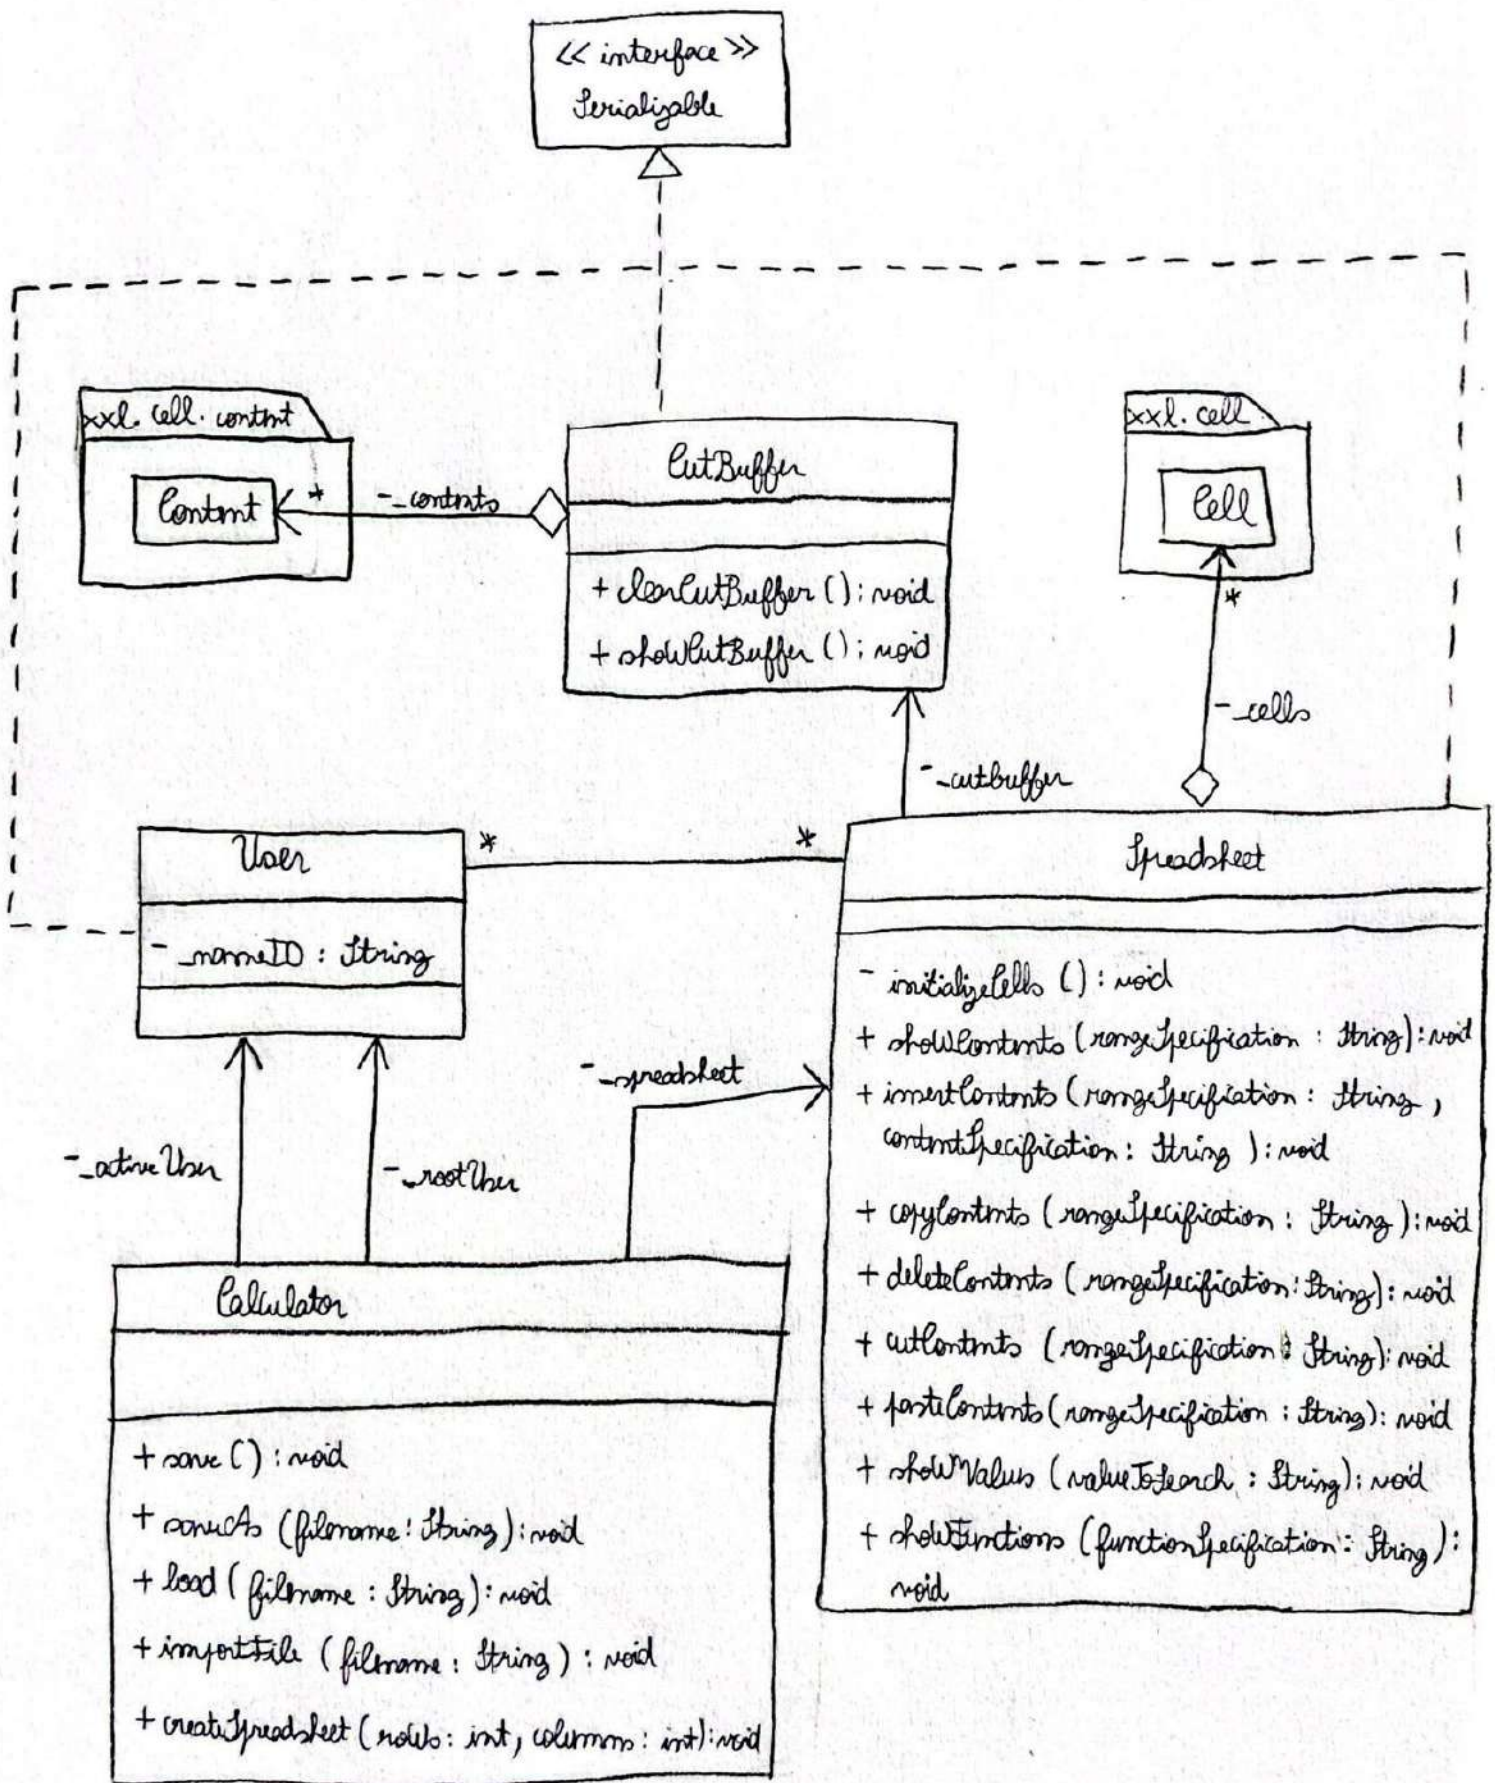 << interface >>
Serializable
xxl.cell.content
Content
*
-_contents
CutBuffer
+ clearCutBuffer () : void
+ showCutBuffer () : void
xxl.cell
Cell
*
-_cells
-_cutbuffer
User
-_nameID : String
*
*
Spreadsheet
- initializeCells () : void
+ showContents (rangeSpecification : String) : void
+ insertContents (rangeSpecification : String ,
contentSpecification : String ) : void
+ copyContents (rangeSpecification : String ) : void
+ deleteContents (rangeSpecification : String) : void
+ cutContents (rangeSpecification : String) : void
+ pasteContents (rangeSpecification : String) : void
+ showValues (valueToSearch : String) : void
+ showFunctions (functionSpecification : String) :
void
-_spreadsheet
-_activeUser
-_rootUser
Calculator
+ save () : void
+ saveAs (filename : String) : void
+ load (filename : String) : void
+ importFile (filename : String) : void
+ createSpreadsheet (rows : int, columns : int) : void